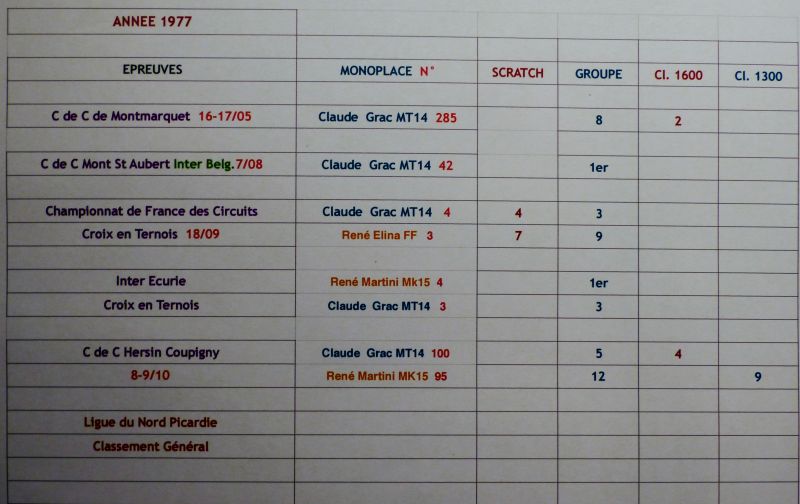 ANNEE 1977
EPREUVES MONOPLACE N° SCRATCH GROUPE Cl. 1600 Cl. 1300
C de C de Montmarquet 16-17/05 Claude Grac MT14 285 8 2
C de C Mont St Aubert Inter Belg.7/08 Claude Grac MT14 42 1er
Championnat de France des Circuits Claude Grac MT14 4 4 3
Croix en Ternois 18/09 René Elina FF 3 7 9
Inter Ecurie René Martini Mk15 4 1er
Croix en Ternois Claude Grac MT14 3 3
C de C Hersin Coupigny Claude Grac MT14 100 5 4
8-9/10 René Martini MK15 95 12 9
Ligue du Nord Picardie
Classement Général